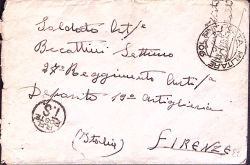 Soldato Art/e
Becattini Settimo
2° Reggimento Arti/e
Deposito 19° Artiglieria
(Italia) FIRENZE